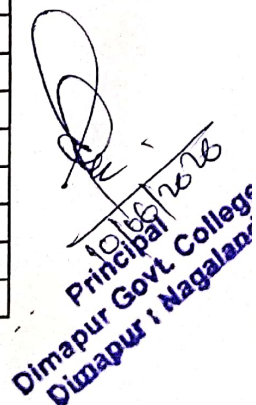 10/06/2020
Principal
Dimapur Govt. College
Dimapur : Nagaland